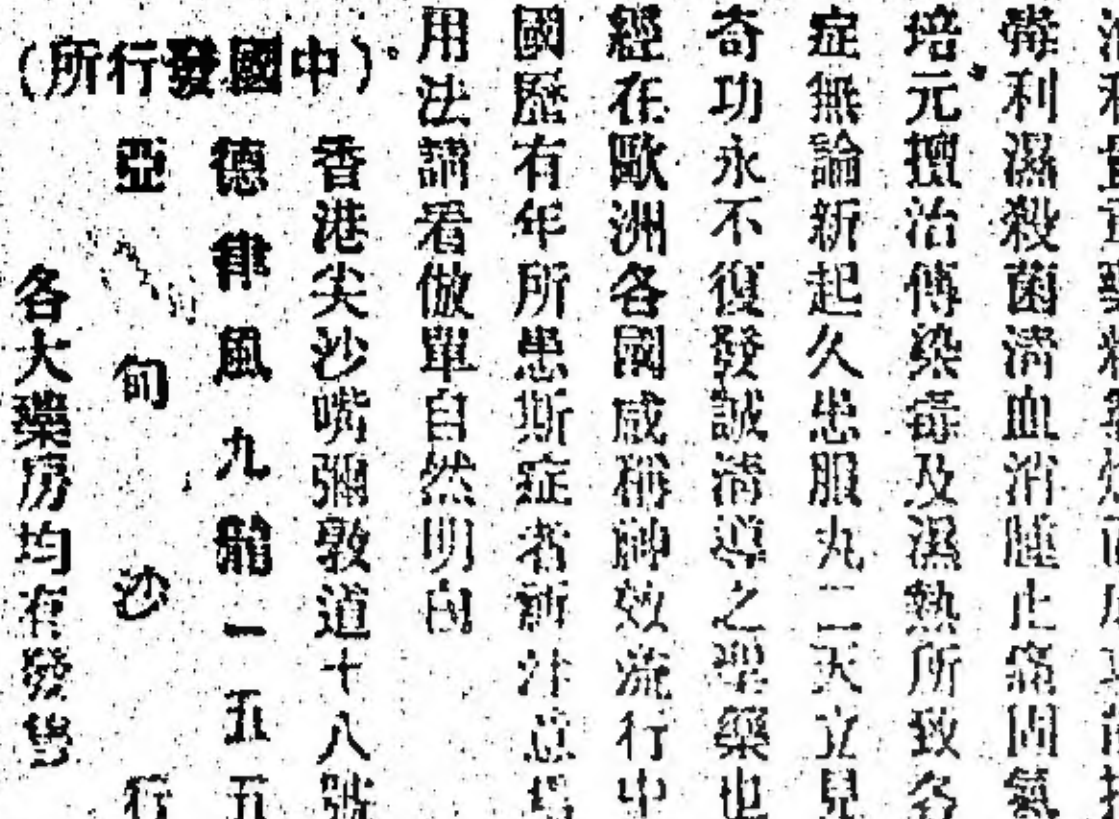 毒利濕殺菌清血消腫止痛固氣
培元擅治傳染毒及濕熱所致各
症無論新起久患服丸二三天立見
奇功永不復發誠清導之聖藥也
經在歐洲各國咸稱神效流行中
國歷有年所患斯症者請注意焉
用法請看倣單自然明白。
(中國發行所)
香港尖沙嘴彌敦道十八號
德律風九龍一五五
亞旬沙行
各大藥房均有發售